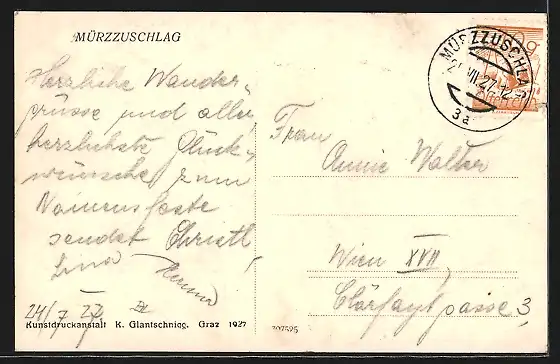 MÜRZZUSCHLAG
Herzliche Wander-
grüsse und aller-
herzlichste Glück-
wünsche zum
Namensfeste
sendet Christl
Lina
24/7 27
Kunstdruckanstalt K. Glantschnigg, Graz 1927
MÜRZZUSCHLA
VII.27.12
3a
Frau
Annie Walter
Wien XVII
Clärfaytgasse 3